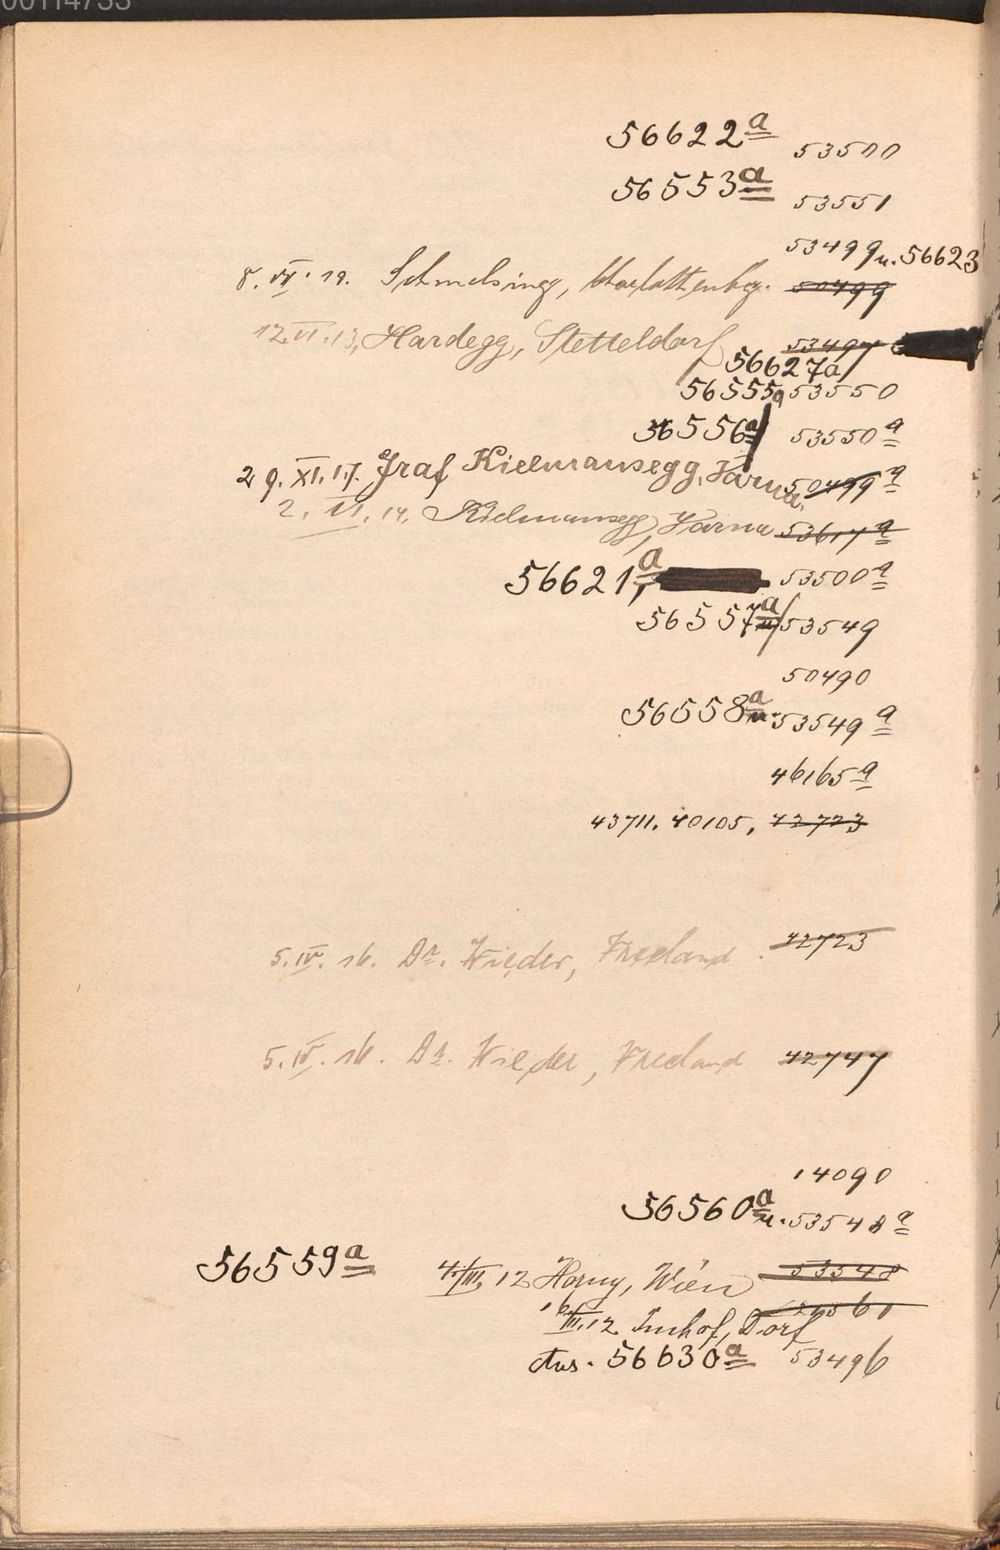 00114733
56622a 53500
56553a 53551
53499 u. 56623
8. VI. 19. Schmelsing, Charlottenbg. 50499
12. VI. 13, Hardegg, Stetteldorf 53497
56627a
56555a 53550
56556a 53550a
29. XI. 17. Graf Kielmansegg, Varna. 50499a
2. VI. 14. Kielmansegg, Varna 53617a
56621a, 53500a
56557a u 53549
50490
56558a u. 53549a
46165a
43711. 40105, 42723
5. IV. 16. Dr. Wieder, Freeland. 42723
5. IV. 16. Dr. Wieder, Freeland 42747
14090
56560a u. 53548a
56559a 4./III. 12 Horny, Wien 53548
16/III. 12 Imhof, Dorf
56630a 53496